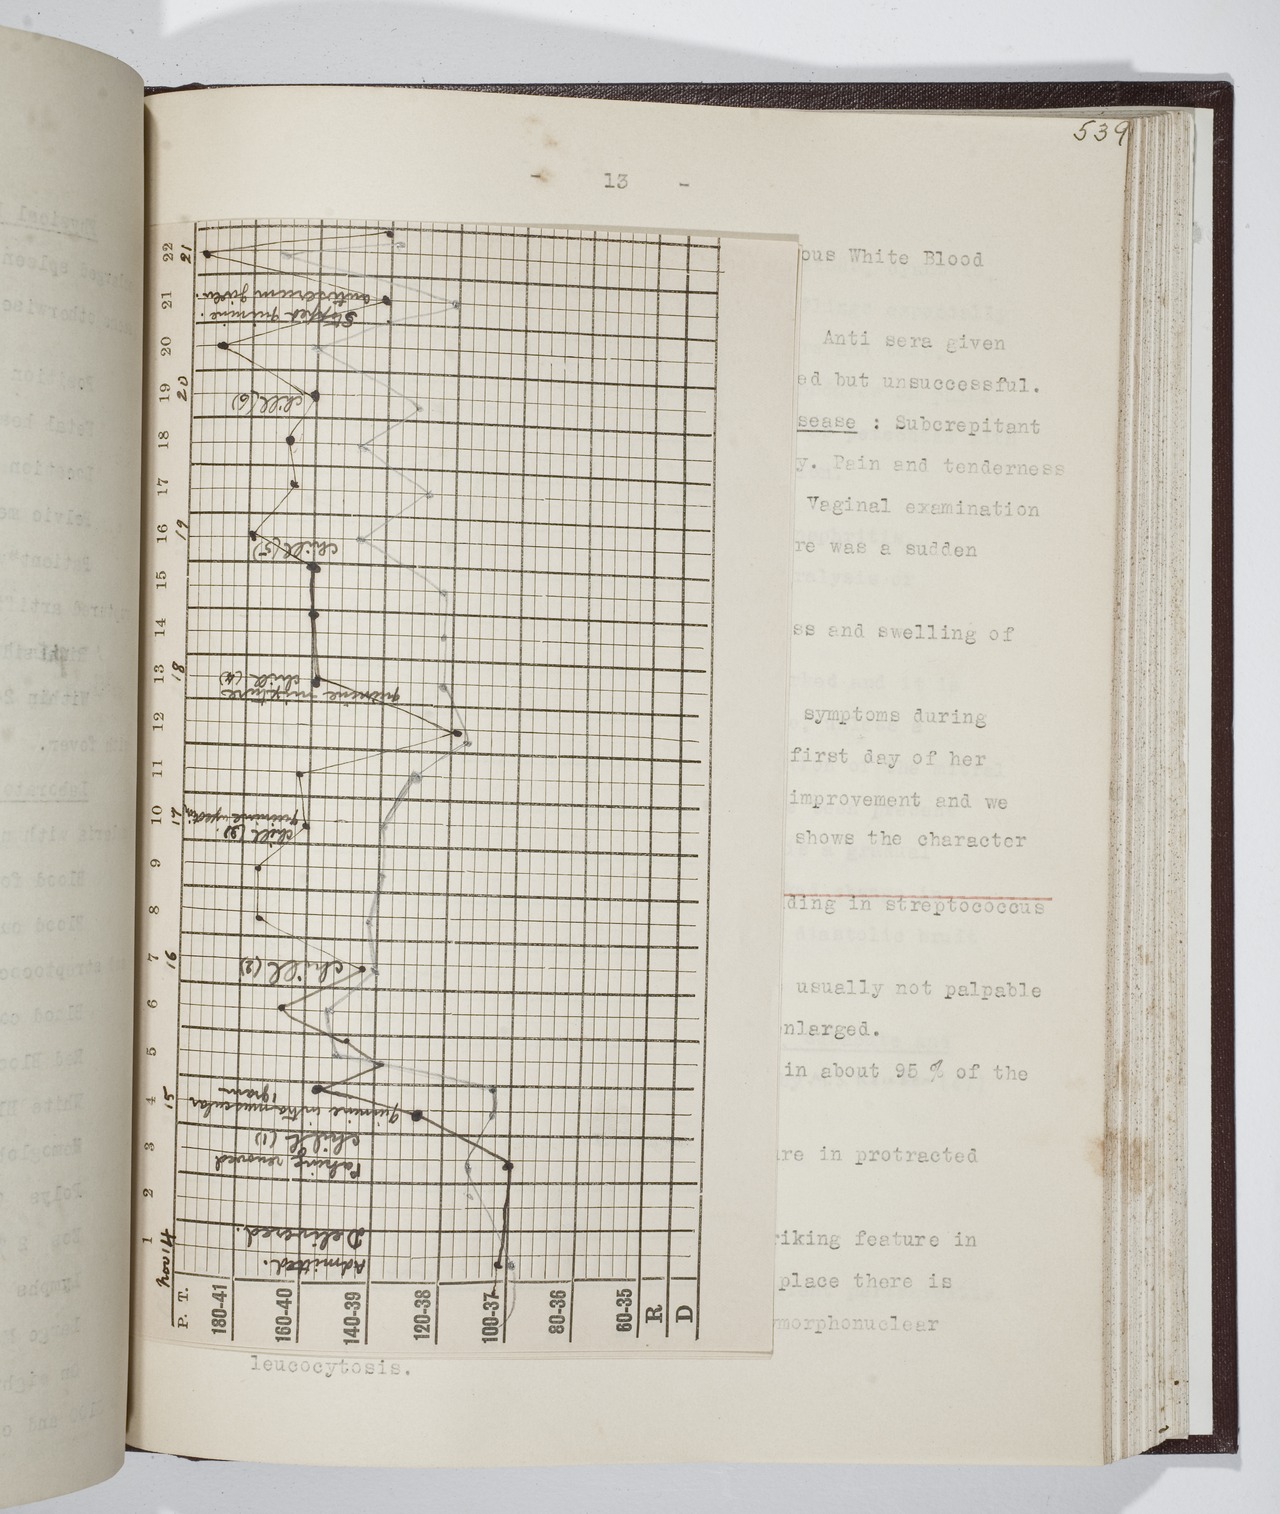 539
- 13 -
ous White Blood
Anti sera given
ed but unsuccessful.
sease : Subcrepitant
y. Pain and tenderness
Vaginal examination
re was a sudden
ss and swelling of
symptoms during
first day of her
improvement and we
shows the character
ding in streptococcus
usually not palpable
nlarged.
in about 95 % of the
re in protracted
riking feature in
place there is
morphonuclear
leucocytosis.
1 2 3 4 5 6 7 8 9 10 11 12 13 14 15 16 17 18 19 20 21 22
Nov 14 15 16 17 18 19 20 21
P. T.
180-41
160-40
140-39
120-38
100-37
80-36
60-35
R
D
Admitted.
Delivered.
Packing removed
chill (1)
Quinine intramuscular
1gram
chill (2)
chill (3)
quinine
quinine mixture
chill (4)
chill (5)
chill (6)
Stopped quinine.
antiserum given.